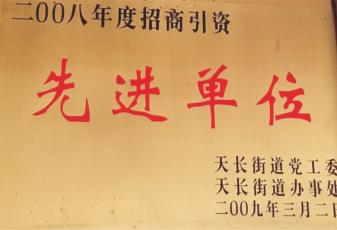 二00八年度招商引资
先进单位
天长街道党工委
天长街道办事处
二00九年三月二日